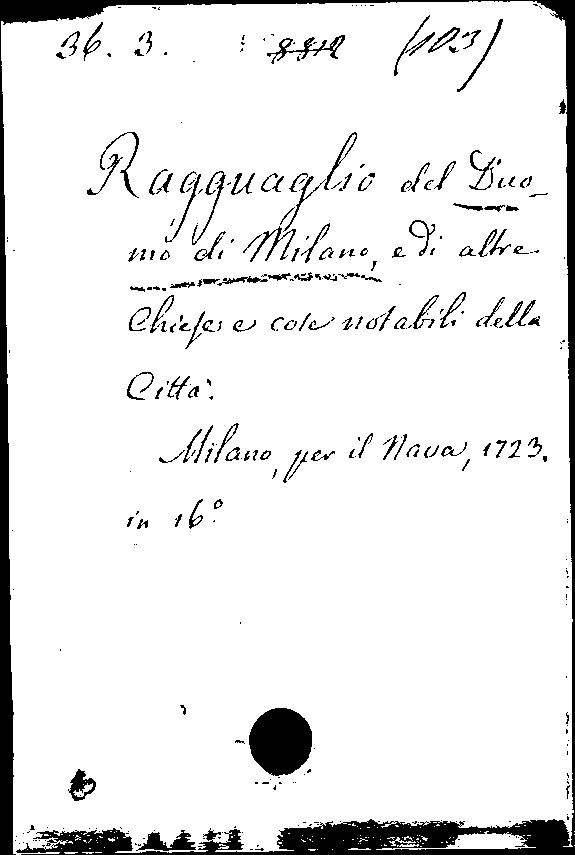 36. 3. 8812 (103)
Ragguaglio del Duo-
mo di Milano, e di altre
Chiese e cose notabili della
Città.
Milano, per il Nava, 1723.
in 16.º